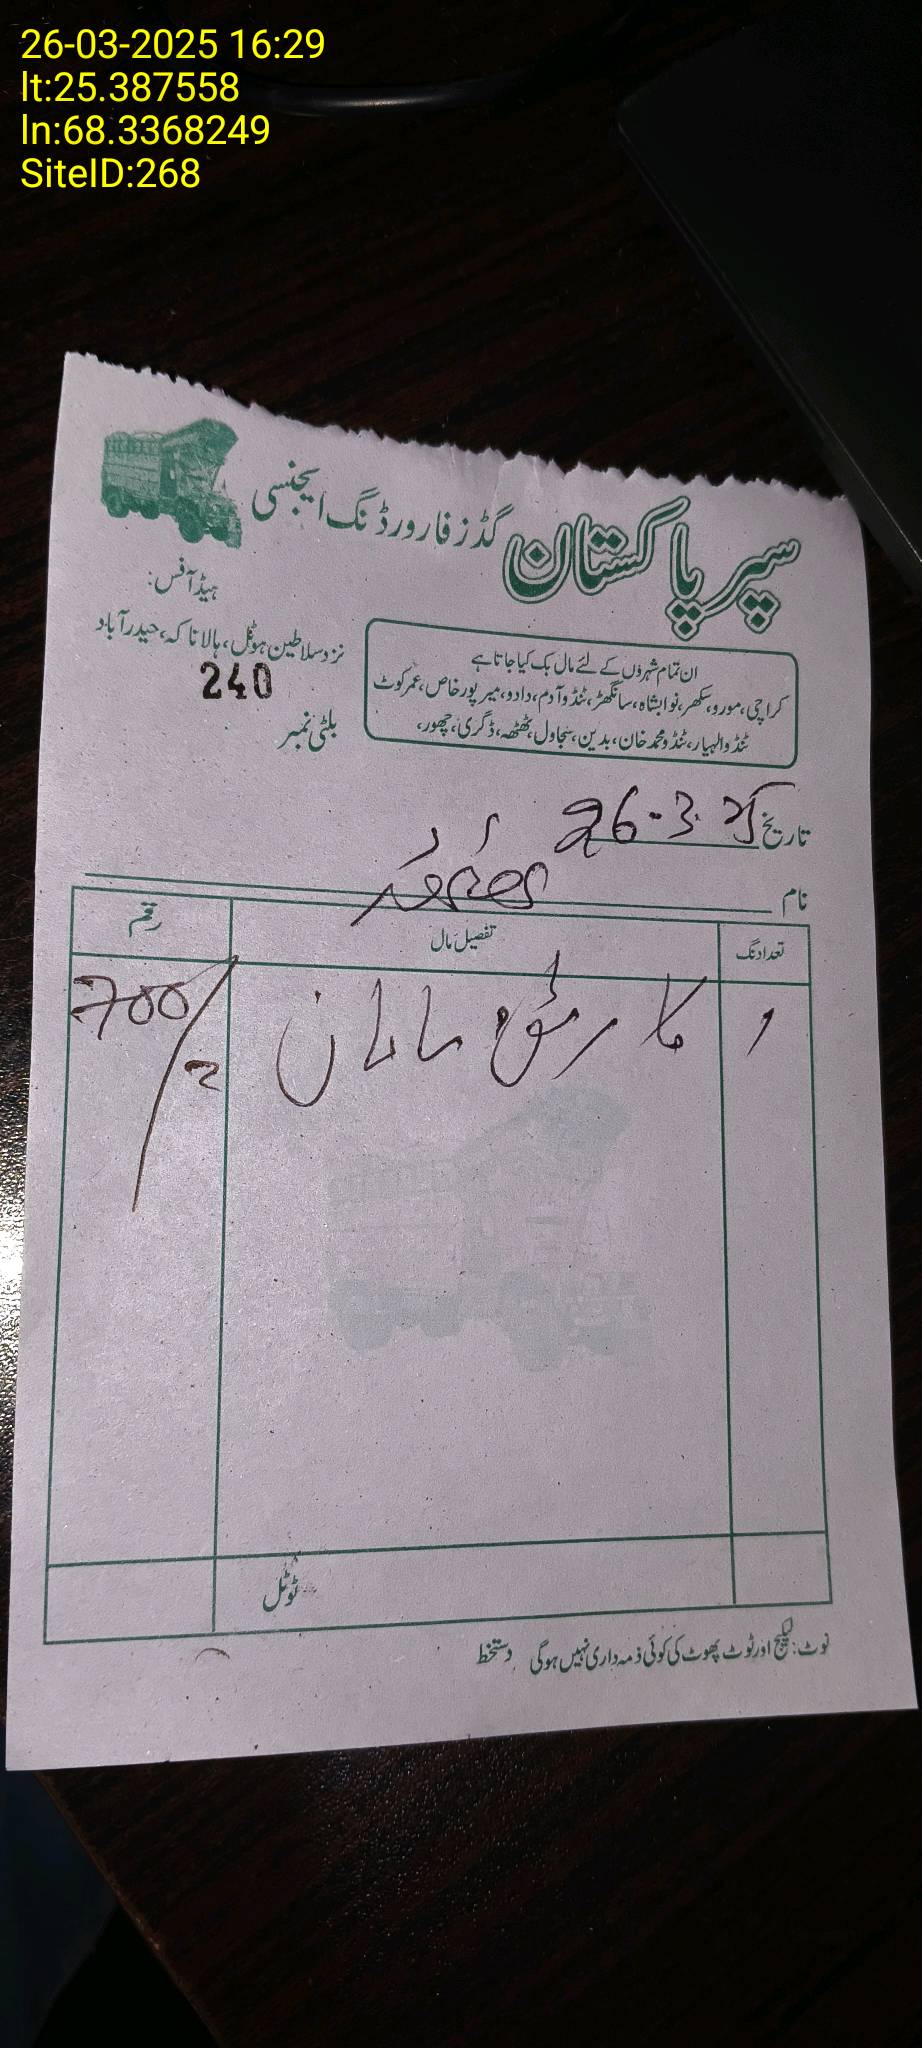 26-03-2025 16:29
lt:25.387558
ln:68.3368249
SiteID:268
سپر پاکستان گڈز فارورڈنگ ایجنسی
ہیڈ آفس:
نزد سلاطین ہوٹل، ہالا ناکہ، حیدرآباد
240
بلٹی نمبر
ان تمام شہروں کے لئے مال بک کیا جاتا ہے
کراچی، مورو، سکھر، نوابشاہ، سانگھڑ، ٹنڈوآدم، دادو، میرپورخاص، عمرکوٹ
ٹنڈوالہیار، ٹنڈومحمدخان، بدین، سجاول، ٹھٹھہ، ڈگری، چھور،
تاریخ 26-3-25
نام
تعداد نگ تفصیل مال رقم
کارٹن سامان 700/=
ٹوٹل
نوٹ: لیکیج اور ٹوٹ پھوٹ کی کوئی ذمہ داری نہیں ہوگی دستخط